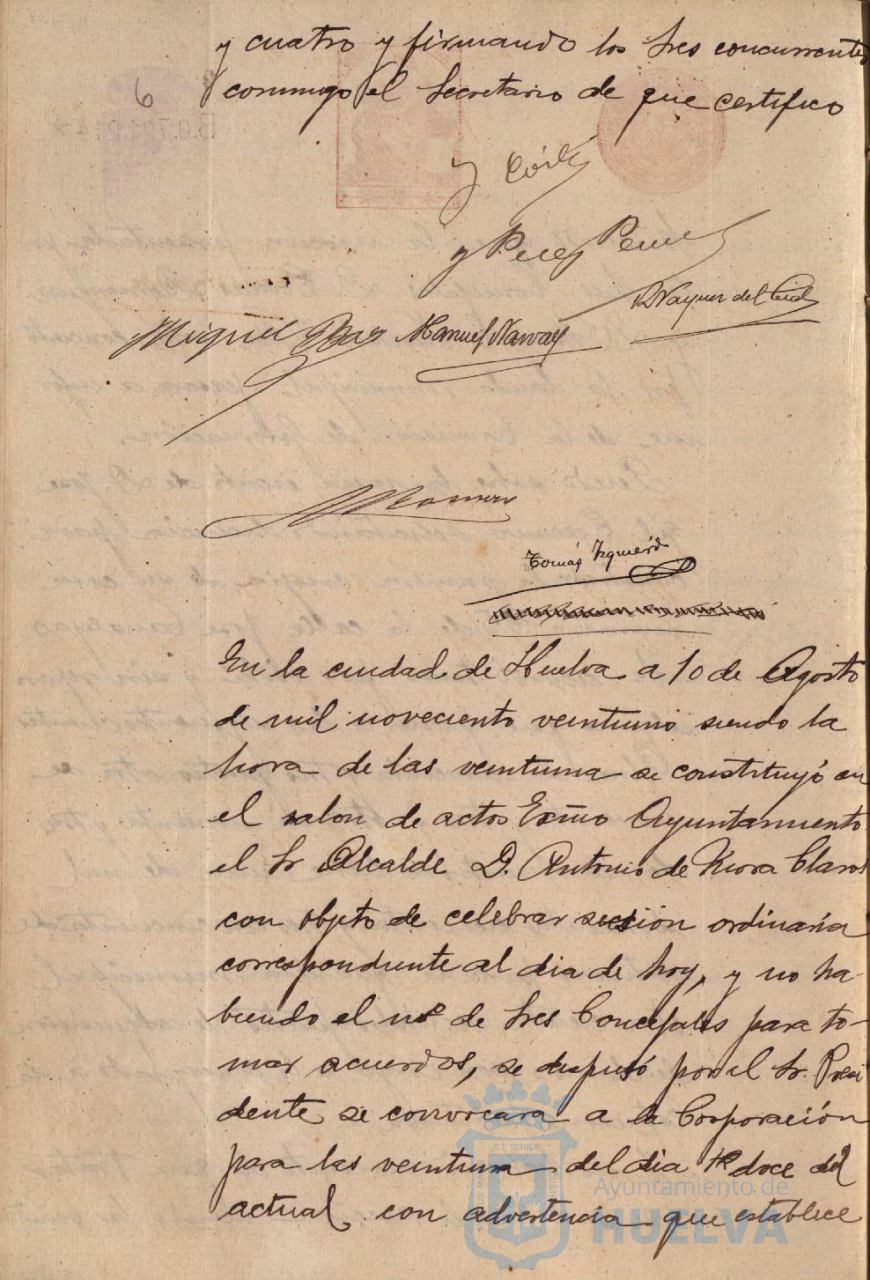 y cuatro y firmando los Sres concurrentes
6
conmigo el Secretario de que certifico
y Perez
Miguel Manuel Narvaez
Vazquez del Cid
Tomás Izquierdo
En la ciudad de Huelva a 10 de Agosto
de mil noveciento veintiuno siendo la
hora de las veintiuna se constituyó en
el salon de actos Exmo Ayuntamiento
el Sr Alcalde D. Antonio de Mora Claros
con objeto de celebrar sesión ordinaria
correspondiente al dia de hoy, y no ha-
biendo el nº de Sres Concejales para to-
mar acuerdos, se dispusó por el Sr. Presi
dente se convocara a la Corporación
para las veintiuna del dia doce del
actual con advertencia que establece
Ayuntamiento de
HUELVA